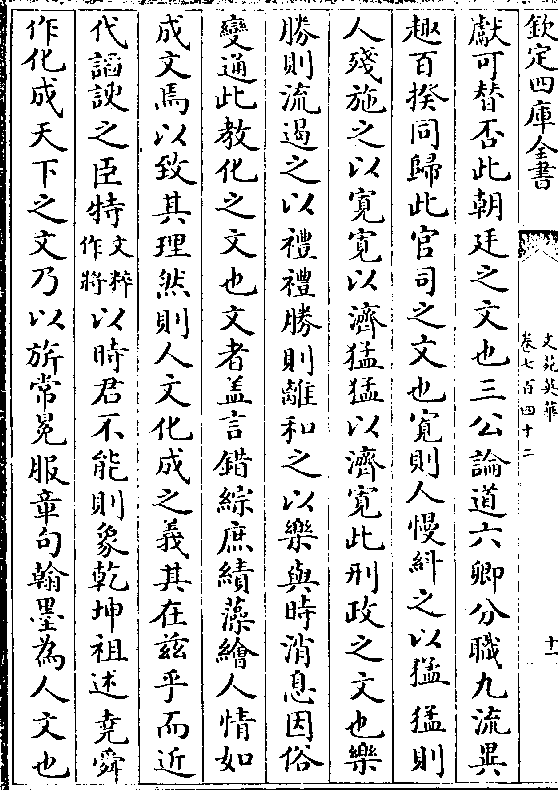 欽定四庫全書
文苑英華
卷七百四十二
十一
獻可替否此朝廷之文也三公論道六卿分職九流異
趣百揆同歸此官司之文也寛則人慢糾之以猛猛則
人殘施之以寛寛以濟猛猛以濟寛此刑政之文也樂
勝則流遏之以禮禮勝則離和之以樂與時消息因俗
變通此教化之文也文者盖言錯綜庶績藻繪人情如
成文焉以致其理然則人文化成之義其在兹乎而近
代謟諛之臣特文粹作將以時君不能則象乾坤祖述堯舜
作化成天下之文乃以旂常冕服章句翰墨為人文也